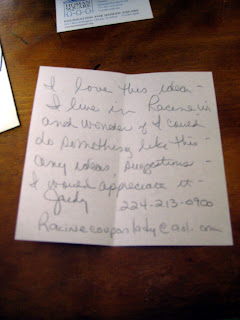 I love this idea -
I live in Racine, Wi
and wonder if I could
do something like this -
any ideas, suggestions -
I would appreciate it -
Judy 224-213-0900
Racinecouponlady@aol.com